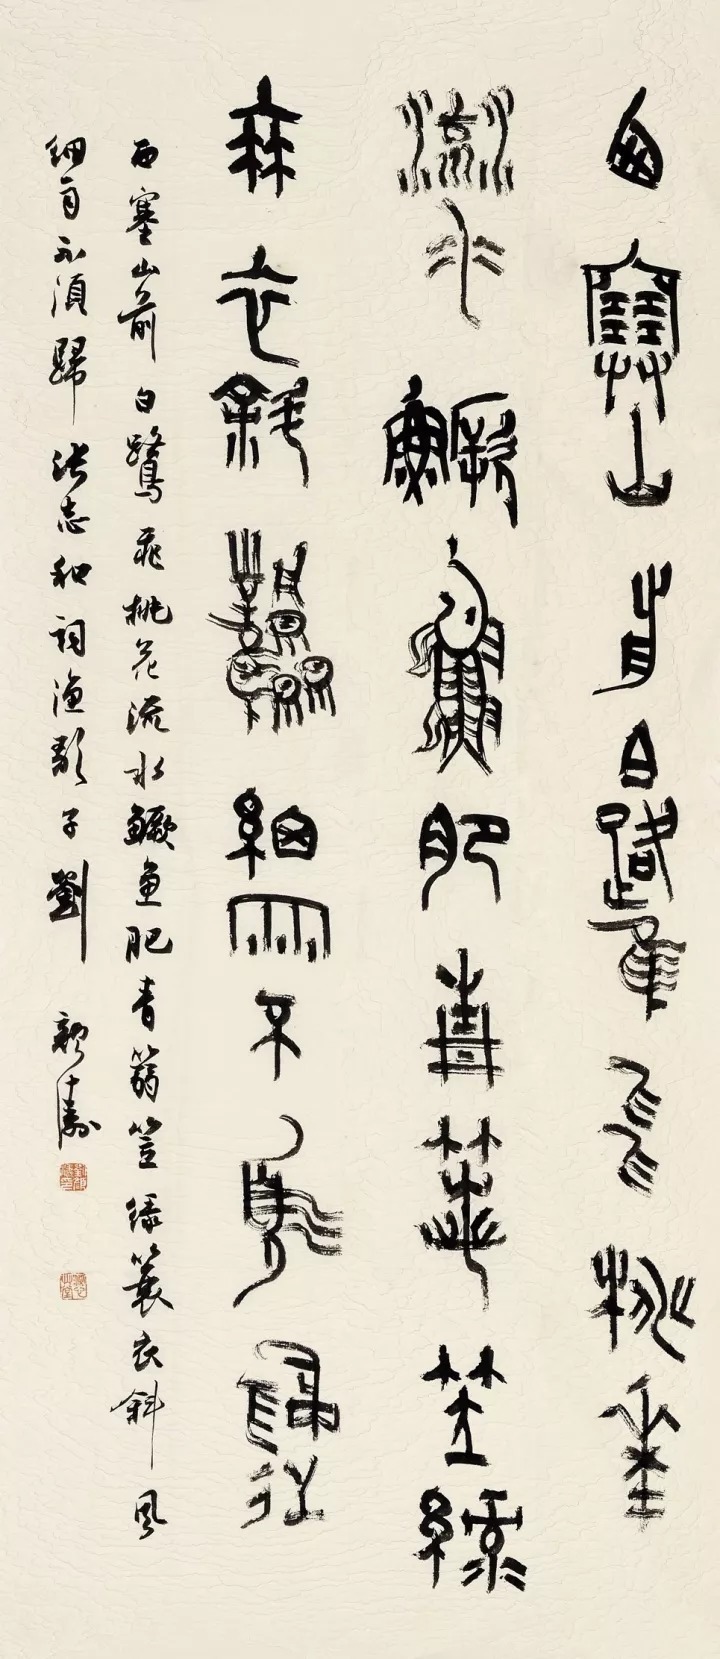 西塞山前白鷺飛桃花
流水鱖魚肥青箬笠綠
蓑衣斜風細雨不須歸
西塞山前白鷺飛桃花流水鱖魚肥青篛笠綠簑衣斜風
細雨不須歸 張志和詞漁歌子 劉顏濤